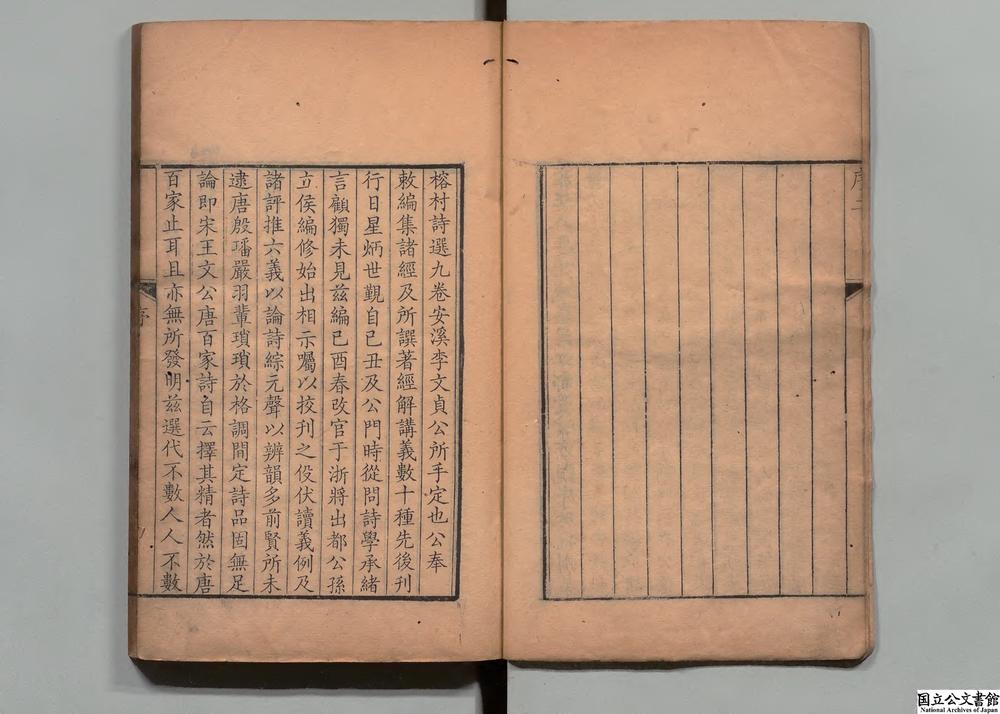 序二
榕村詩選九卷安溪李文貞公所手定也公奉
敕編集諸經及所譔著經解講義數十種先後刊
行日星炳世覲自己丑及公門時從問詩學承緒
言顧獨未見茲編己酉春改官于浙將出都公孫
立侯編修始出相示囑以挍刊之役伏讀義例及
諸評推六義以論詩綜元聲以辨韻多前賢所未
逮唐殷璠嚴羽輩瑣瑣於格調間定詩品固無足
論即宋王文公唐百家詩自云擇其精者然於唐
百家止耳且亦無所發明茲選代不數人人不數
序
国立公文書館
National Archives of Japan